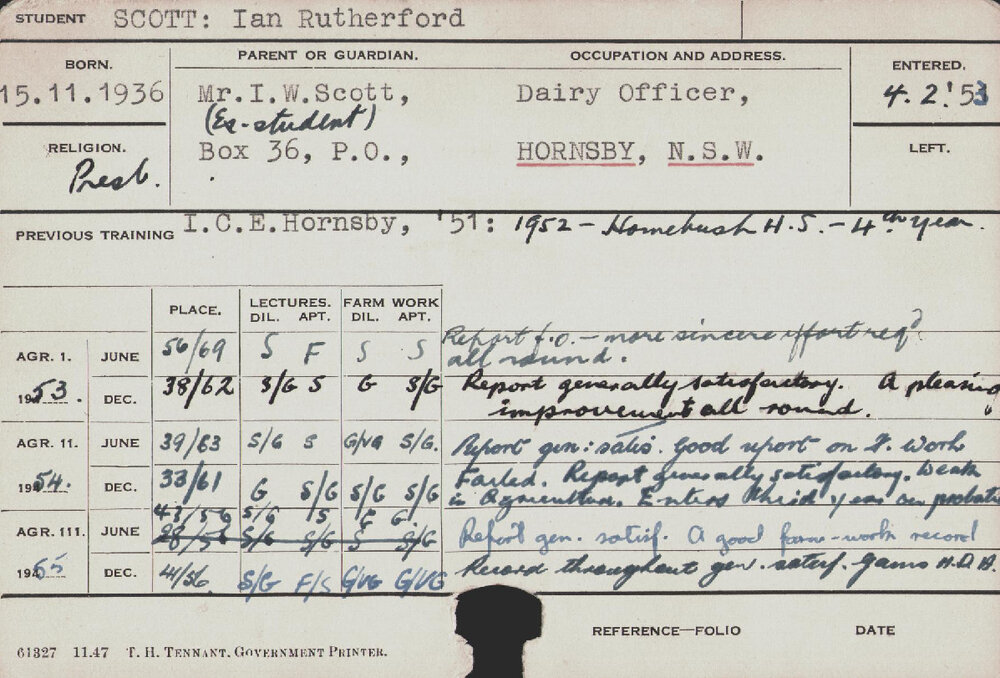 STUDENT SCOTT: Ian Rutherford
BORN. PARENT OR GUARDIAN. OCCUPATION AND ADDRESS. ENTERED.
15.11.1936 Mr.I.W.Scott, Dairy Officer, 4.2.'53
(Ex-student)
RELIGION. Box 36, P.O., HORNSBY, N.S.W. LEFT.
Presb.
PREVIOUS TRAINING I.C.E.Hornsby, '51: 1952 - Homebush H.S. - 4th year.
PLACE. LECTURES. FARM WORK
DIL. APT. DIL. APT.
AGR. 1. JUNE 56/69 S F S S Report f.o. - more sincere effort reqd
all round.
1953. DEC. 38/62 S/G S G S/G Report generally satisfactory. A pleasing
improvement all round.
AGR. 11. JUNE 39/63 S/G S G/VG S/G. Report gen: satis. Good report on F. Work
1954. DEC. 33/61 G S/G S/G S/G Failed. Report generally satisfactory. Weak
in Agriculture. Enters third year on probatn
43/56 S/G S G.
AGR. 111. JUNE 28/56 S/G S/G S S/G Report gen. satisf. A good farm-work record
1955 DEC. 41/56. S/G F/S G/VG G/VG Record throughout gen. satisf. Gains H.D.A.
REFERENCE—FOLIO DATE
61327 11.47 T. H. TENNANT. GOVERNMENT PRINTER.